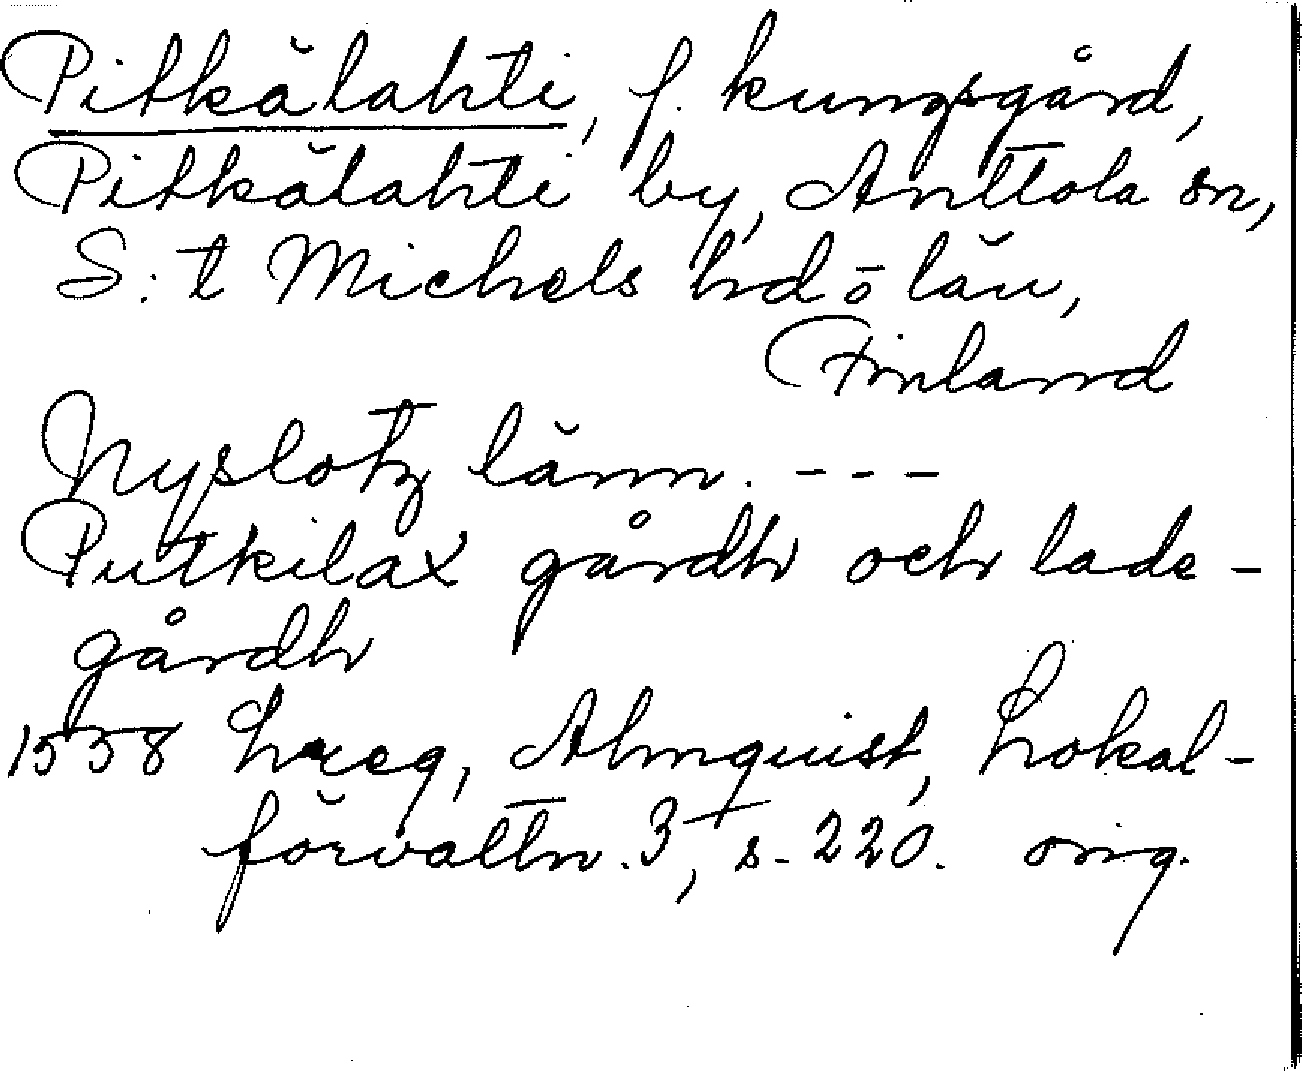 Pitkälahti, f. kungsgård,
Pitkälahti by, Anttola sn,
S:t Michels hd o län,
Finland
Nyslotz länn. ---
Putkilax gårdh och lade-
gårdh
1558 Lreg, Almquist, Lokal-
förvaltn. 3, s. 220. orig.